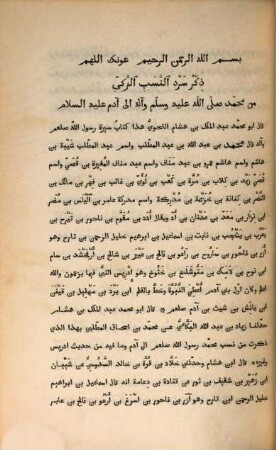 بسم الله الرحمن الرحيم عونك اللهم
ذكر سرد النسب الزكى
من محمد صلى الله عليه وسلم وآله الى آدم عليه السلام
قال ابو محمد عبد الملك بن هشام النحوى هذا كتاب سيرة رسول الله صلعم
قال وآله محمد بن عبد الله بن عبد المطلب واسم عبد المطلب شيبة بن
هاشم واسم هاشم عمرو بن عبد مناف واسم عبد مناف المغيرة بن قصى واسم
قصى زيد بن كلاب بن مرة بن كعب بن لوى بن غالب بن فهر بن مالك بن
النضر بن كنانة بن خزيمة بن مدركة واسم مدركة عامر بن الياس بن مضر
بن نزار بن معد بن عدنان بن اد ويقال ادد بن مقوم بن ناحور بن تيرح بن
يعرب بن يشجب بن نابت بن اسماعيل بن ابراهيم خليل الرحمن بن تارح وهو
آزر بن ناحور بن ساروح بن راعو بن فالخ بن عيبر بن شالخ بن ارفخشد بن سام
بن نوح بن لامك بن متوشلخ بن خنوخ وهو ادريس النبى فيما يزعمون والله
اعلم وكان اول بنى آدم اعطى النبوة وخط بالقلم ابن يرد بن مهليل بن قينن
بن يانش بن شيث بن آدم صلعم ۞ قال ابو محمد عبد الملك بن هشام
حدثنا زياد بن عبد الله البكائى عن محمد بن اسحاق المطلبى بهذا الذى
ذكرت من نسب محمد رسول الله صلعم الى آدم وما فيه من حديث ادريس
وغيره ۞ قال ابن هشام وحدثنى خلاد بن قرة بن خالد السدوسى عن شيبان
بن زهير بن شقيق بن ثور عن قتادة بن دعامة انه قال اسماعيل بن ابراهيم
خليل الرحمن ابن تارح وهو آزر بن ناحور بن اسرغ بن ارغو بن فالخ بن عابر